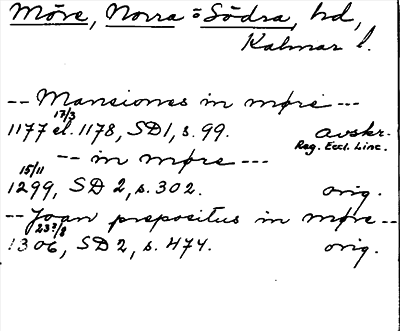 Möre, Norra o Södra, hd,
Kalmar l.
-- Mansiones in møre ---
17/3
1177 el. 1178, SD 1, s. 99. avskr.
Reg. Eccl. Linc.
-- in møre ---
15/11
1299, SD 2, s. 302. orig.
-- Joan prepositus in møre --
23?/8
1306, SD 2, s. 474. orig.